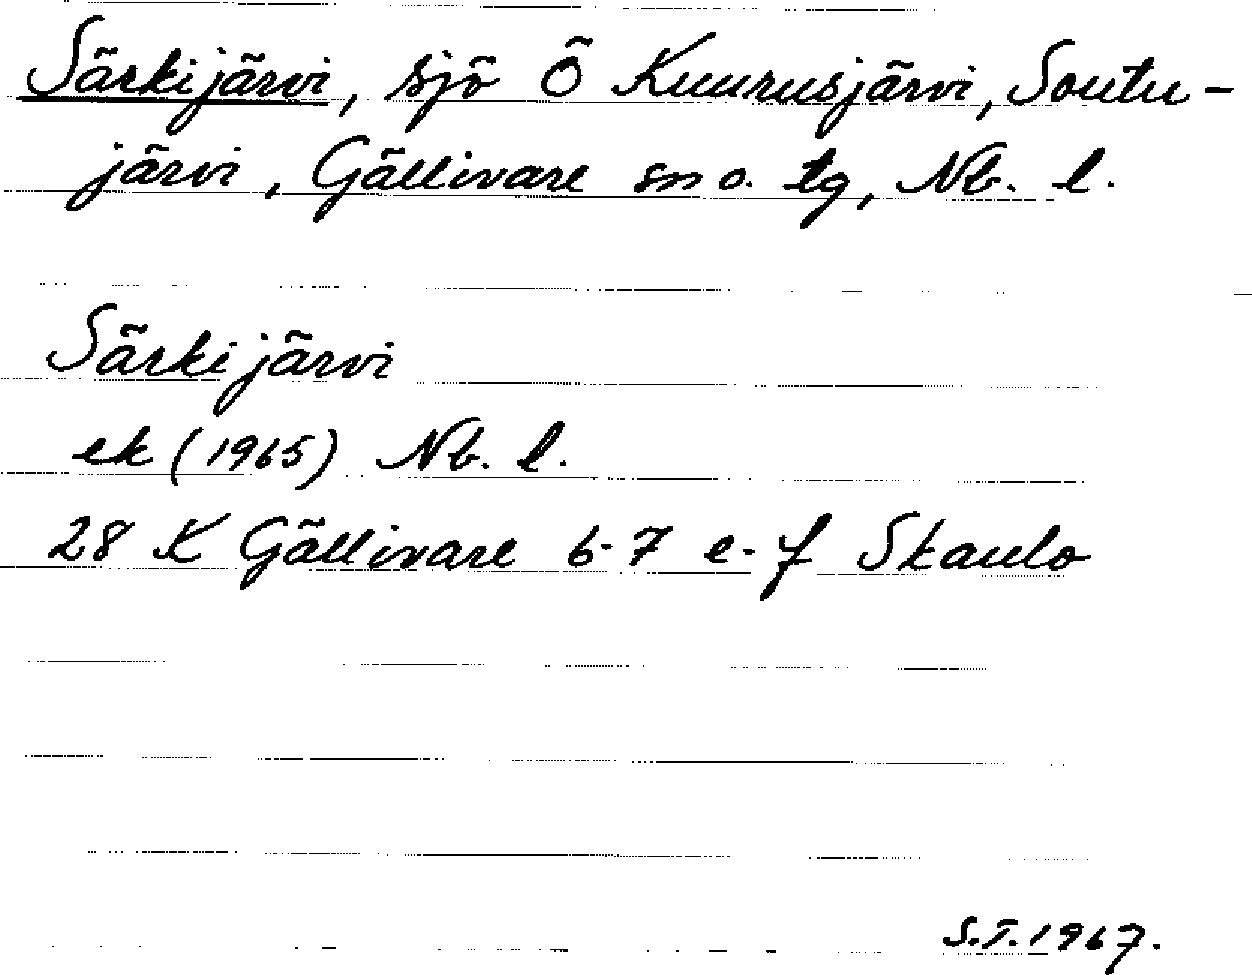 Särkijärvi, sjö Ö Kuurusjärvi, Soutu-
järvi, Gällivare sn o. tg, Nb. l.
Särkijärvi
ek (1965) Nb. l.
28 K Gällivare 6-7 e-f Skaulo
S.T. 1967.